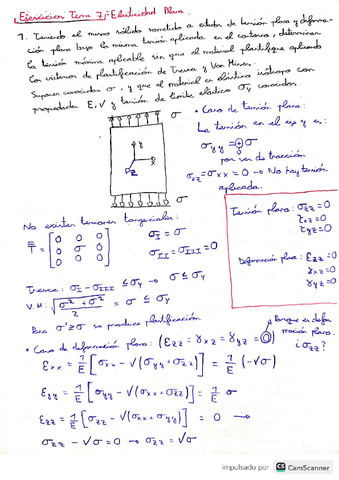 Ejercicios Tema 7: Elasticidad Plana.
1. Teniendo el mismo sólido sometido a estados de tensión plana y deforma-
ción plana bajo la misma tensión aplicada en el contorno, determinar
la tensión máxima aplicable sin que el material plastifique aplicando
los criterios de plastificación de Tresca y Von Mises.
Suponer conocidos σ, y que el material es elástico isótropo con
propiedades E, √ y tensión de límite elástico σy conocidos.
• Caso de tensión plana:
La tensión en el eje y es:
σyy = ⊕ σ
por ser de tracción
σzz = σxx = 0 → No hay tensión
aplicada.
σ
y
x
z
σ
No existen tensiones tangenciales:
T = [0 0 0
0 σ 0
0 0 0]
σI = σ
σII = σIII = 0
Tensión plana: σzz = 0
τxz = 0
τyz = 0
Deformación plana: εzz = 0
γxz = 0
γyz = 0
Tresca: σI - σIII ≤ σy → σ ≤ σy
V.M: √(σ² + σ²)/2 = σ ≤ σy
Para σ ≥ σ se produce plastificación
• Caso de deformación plana: (εzz = γxz = γyz = 0)
Porque es defor
mación plana.
¿σzz?
εxx = 1/E [σxx - √(σyy + σzz)] = 1/E (-√σ)
εyy = 1/E [σyy - √(σxx + σzz)] = 1/E σ
εzz = 1/E [σzz - √(σxx + σyy)] = 0 →
σzz - √σ = 0 → σzz = √σ
impulsado por CS CamScanner